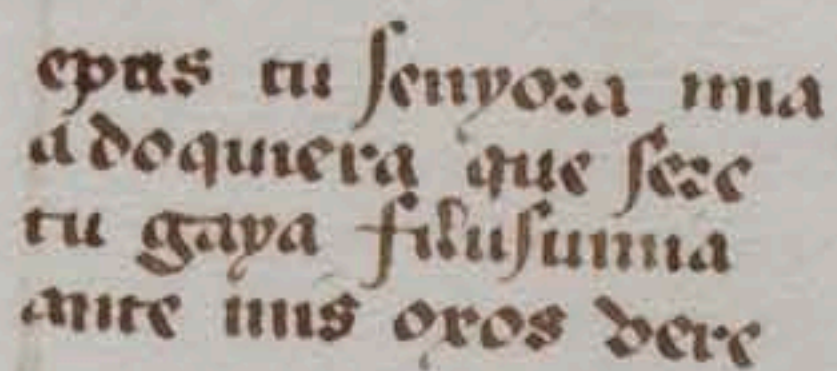 cpas tu senyora mia
a doquiera que sere
tu gaya filusumia
ante mis oxos vere